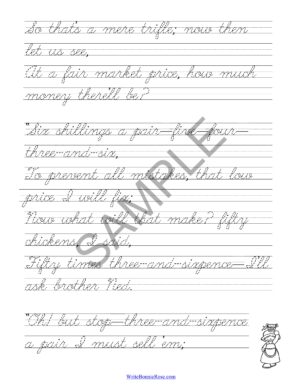 So that's a mere trifle; now then
let us see,
At a fair market price, how much
money there'll be?
"Six shillings a pair—five—four—
three-and-six,
To prevent all mistakes, that low
price I will fix;
Now what will that make? fifty
chickens, I said,
Fifty times three-and-sixpence—I'll
ask brother Ned.
"Oh! but stop—three-and-sixpence
a pair I must sell 'em;
SAMPLE
WriteBonnieRose.com